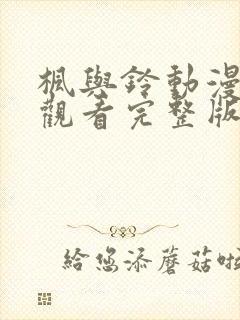 楓與鈴動漫
觀看完整版
給您添蘑菇啦